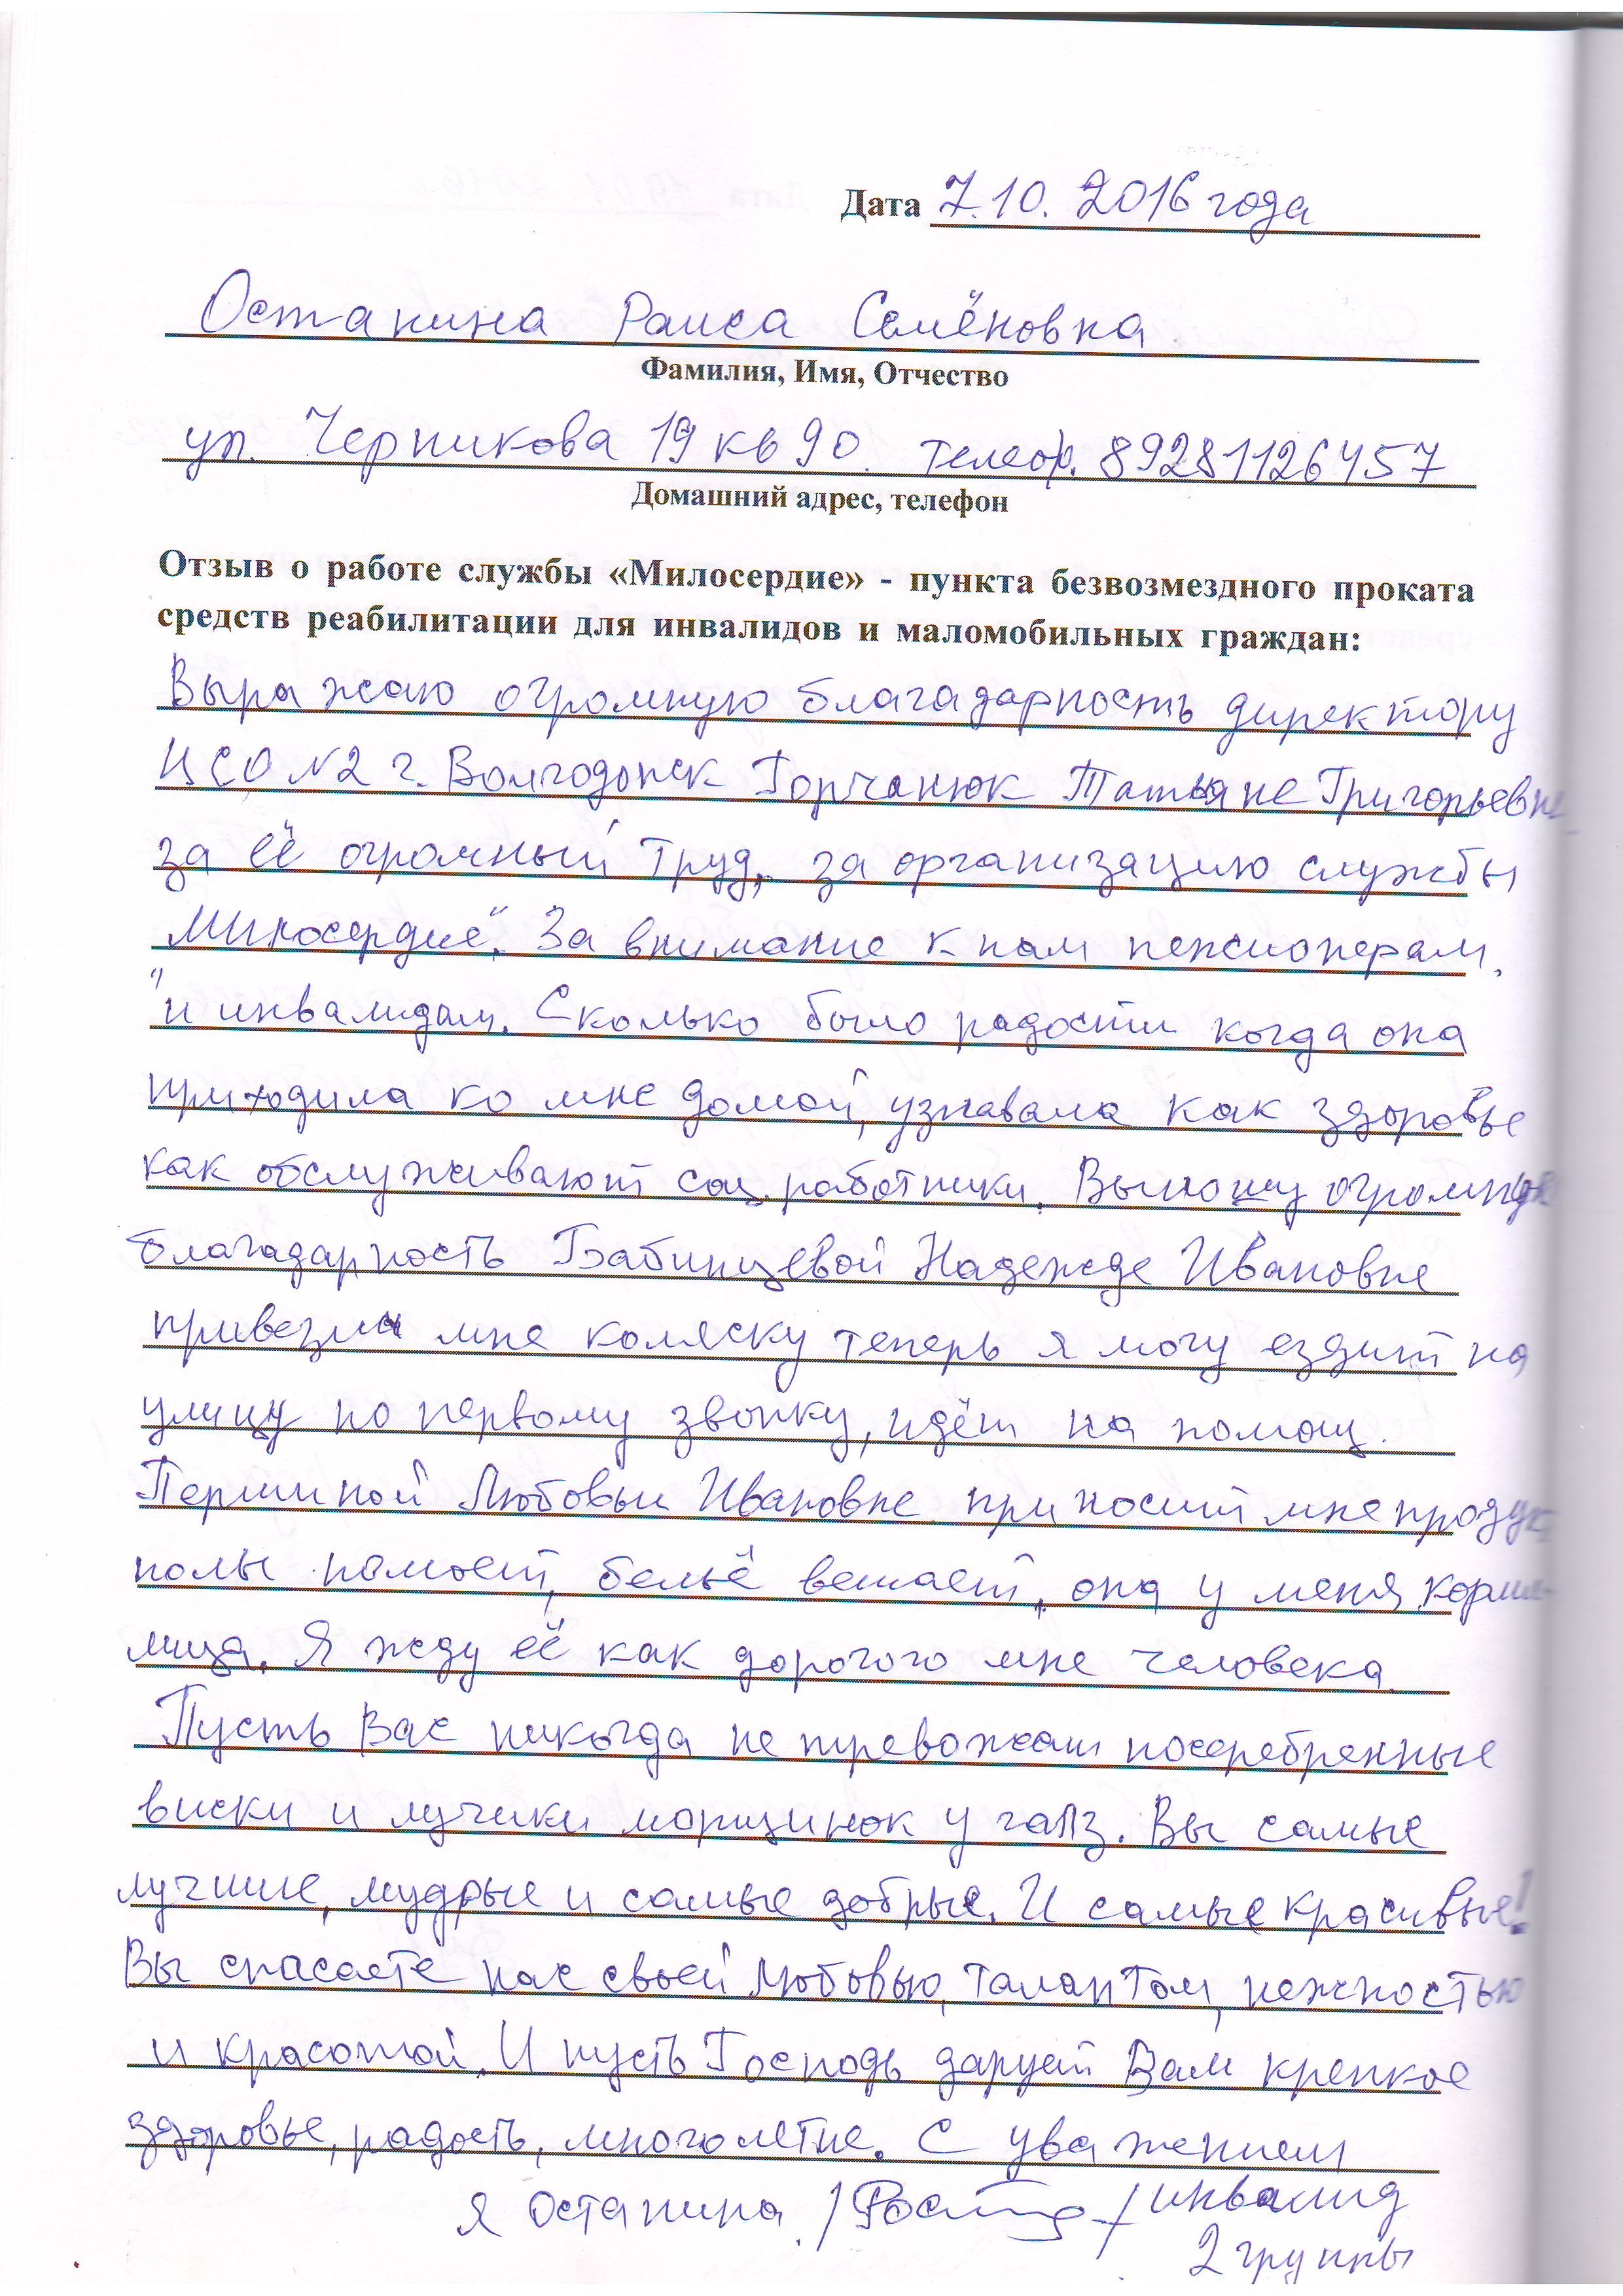 Дата 7.10. 2016 года
Останина Раиса Семёновна
Фамилия, Имя, Отчество
ул. Черникова 19 кв 90. телеф. 89281126457
Домашний адрес, телефон
Отзыв о работе службы «Милосердие» - пункта безвозмездного проката
средств реабилитации для инвалидов и маломобильных граждан:
Выражаю огромную благадарность директору
ЦСО №2 г. Волгодонск Горчанюк Татьяне Григорьевне
за её огромный труд, за организацию службы
"Милосердие". За внимание к нам пенсионерам.
и инвалидам. Сколько было радости когда она
приходила ко мне домой, узнавала как здоровье
как обслуживают соц. работники. Выношу огромную
благадарность Бабинцевой Надежде Ивановне
привезла мне коляску теперь я могу ездит на
улицу по первому звонку, идёт на помощ.
Першиной Любовьи Ивановне приносит мне продук
полы помоет, бельё вешает, она у меня корми-
лица. Я жду её как дорогого мне человека.
Пусть Вас никогда не тревожат посеребренные
виски и лучики морщинок у галз. Вы самые
лучшие, мудрые и самые добрые. И самые красивые!
Вы спасаете нас своей любовью, талантом, нежностью
и красотой. И пусть Господь дарует Вам крепкое
здоровье, радость, многолетие. С уважением
я Останина. / / инвалид
2 группы